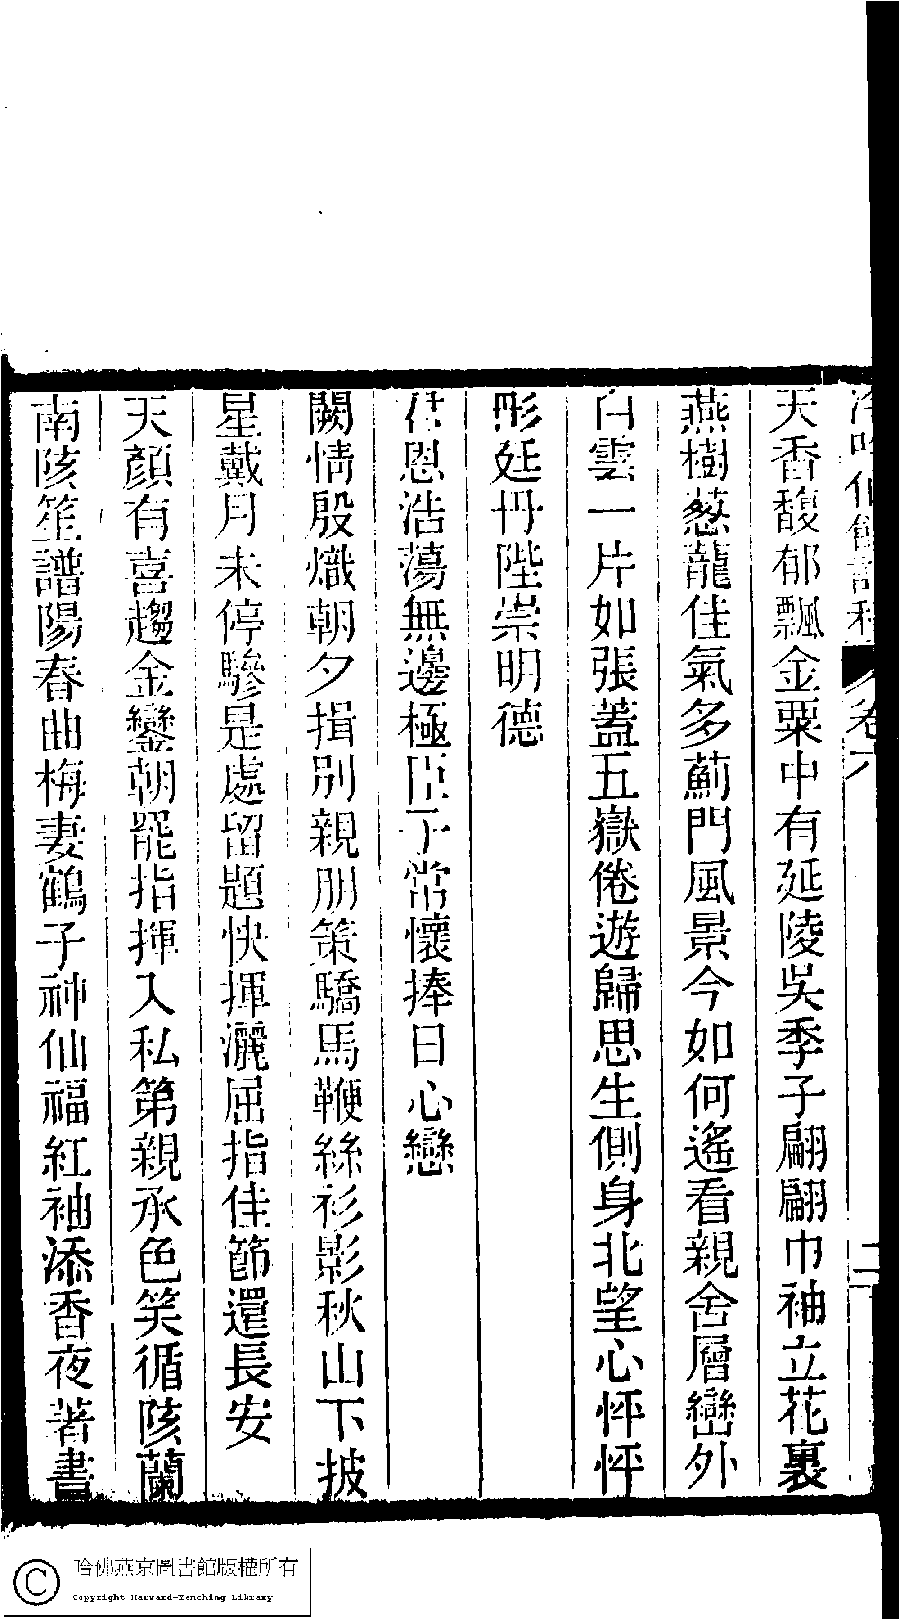 卷六
二
天香馥郁飄金粟中有延陵吳季子翩翩巾袖立花裏
燕樹蔥蘢佳氣多薊門風景今如何遙看親舍層巒外
白雲一片如張蓋五嶽倦遊歸思生側身北望心怦怦
彤廷丹陛崇明德
君恩浩蕩無邊極臣子常懷捧日心戀
闕情殷熾朝夕揖別親朋策驕馬鞭絲衫影秋山下披
星戴月未停驂是處留題快揮灑屈指佳節還長安
天顏有喜趨金鑾朝罷指揮入私第親承色笑循陔蘭
南陔笙譜陽春曲梅妻鶴子神仙福紅袖添香夜著書
哈佛燕京圖書館版權所有
Copyright Harvard-Yenching Library